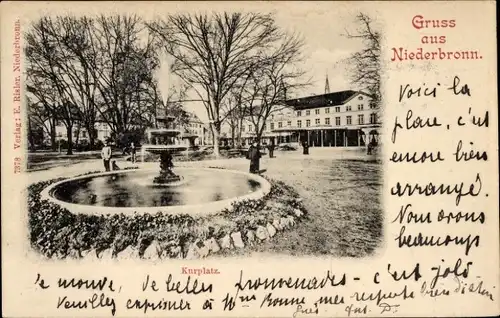 Gruss
aus
Niederbronn.
7378 Verlag: E. Rieler, Niederbronn.
Voici la
place, c'est
encore bien
arrangé,
Nous avons
beaucoup
Kurplatz
de belles promenades - c'est joli
Veuillez exprimer à Mme Bonne mes respects